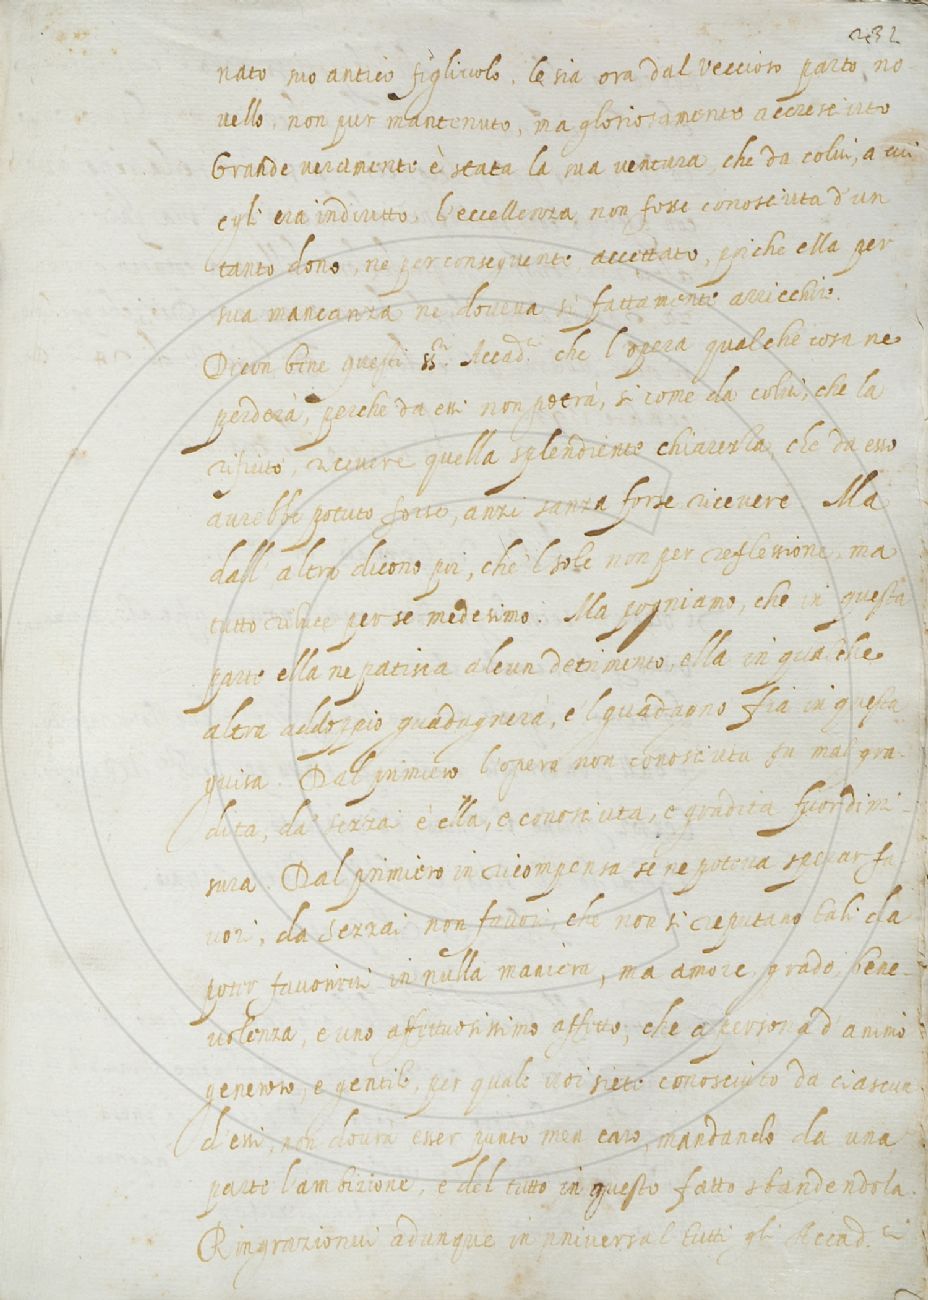 232
nato suo antico figliuolo, le sia ora dal vezzoso parto no-
uello, non pur mantenuto, ma gloriosamente accresciuto
Grande ueramente è stata la sua uentura, che da colui, a cui
egli era indiritto, l'eccellenza non fosse conosciuta d'un
tanto dono, ne per conseguente, accettato, poiche ella per
sua mancanza ne doueua sì fattamente arricchire.
Dicon bene questi SS.ri Accad.ci che l'opera qualche cosa ne
perderà, perche da essi non potrà, si come da colui, che la
rifiutò, riceuere quella splendiente chiarezza, che da esso
aurebbe potuto forse, anzi sanza forse riceuere. Ma
dall'altra dicono poi, che 'l sole non per reflessione, ma
tutto riluce per se medesimo. Ma pogniamo, che in questa
parte ella ne patisca alcun detrimento, ella in qualche
altra addoppio guadagnerà, e 'l guadagno fia in questa
guisa. Dal primiero l'opera non conosciuta fu mal gra-
dita, da' sezzai è ella, e conosciuta, e gradita fuor di mi-
sura. Dal primiero in ricompensa se ne poteua sperar fa-
uori, da sezzai non fauori, che non si reputano tali da
poter fauorirui in nulla maniera, ma amore, grado, bene-
uolenza, e uno affettuosissimo affetto, che a persona d'animo
generoso, e gentile, per quale uoi siete conosciuto da ciascun
d'essi, non dourà esser punto men caro, mandando da una
parte l'ambizione, e del tutto in questo fatto sbandendola.
Ringrazionui adunque in vniuersal tutti gli Accad.ci